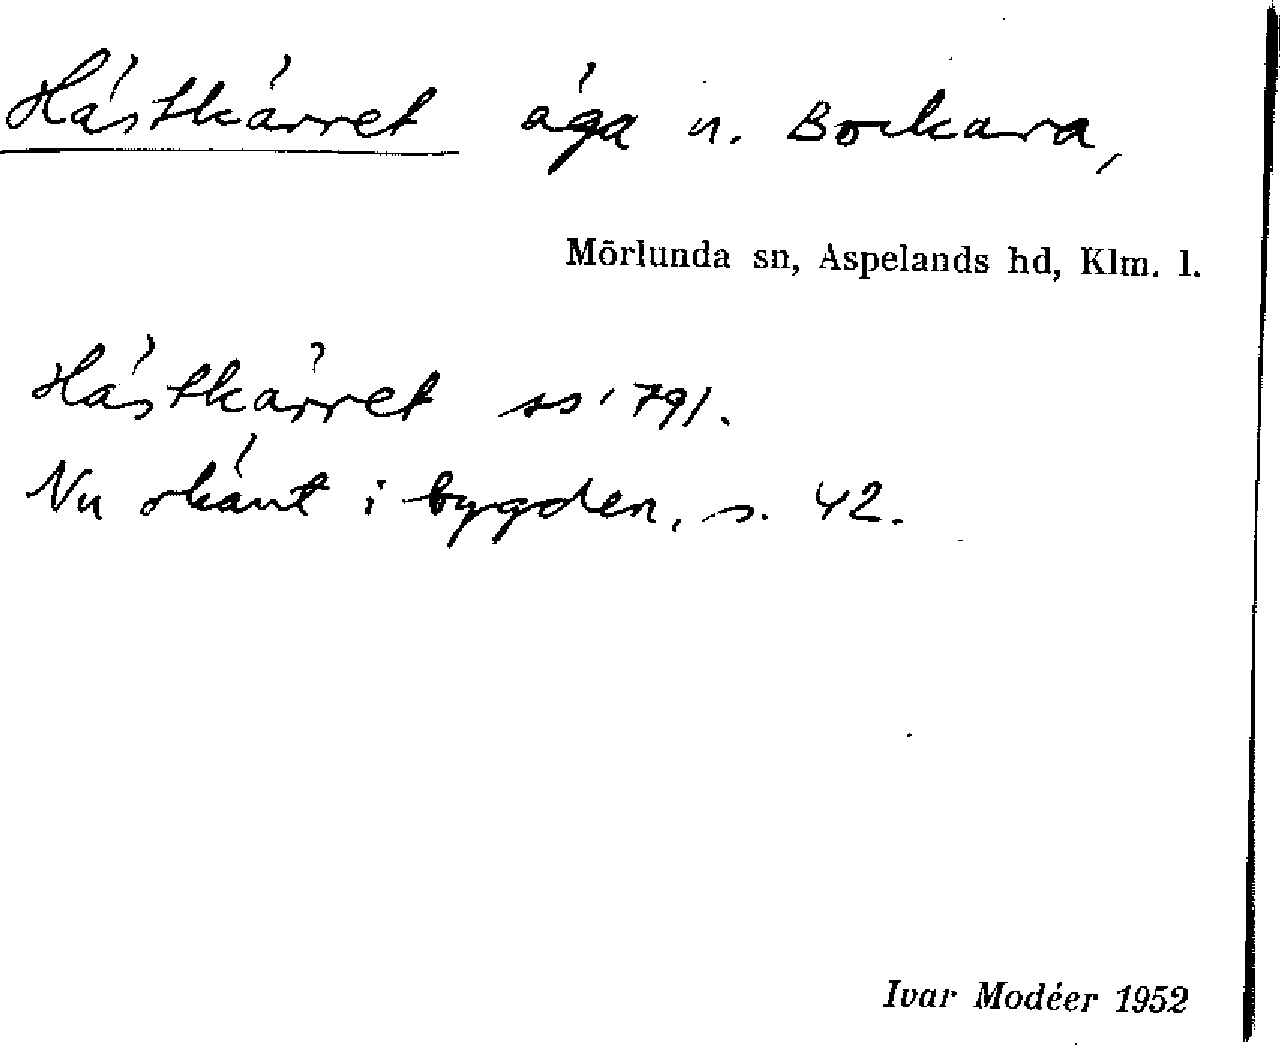 Hästkärret äga n. Bockara,
Mörlunda sn, Aspelands hd, Klm. l.
Hästkärret ss 1791.
Nu okänt i bygden, s. 42.
Ivar Modéer 1952